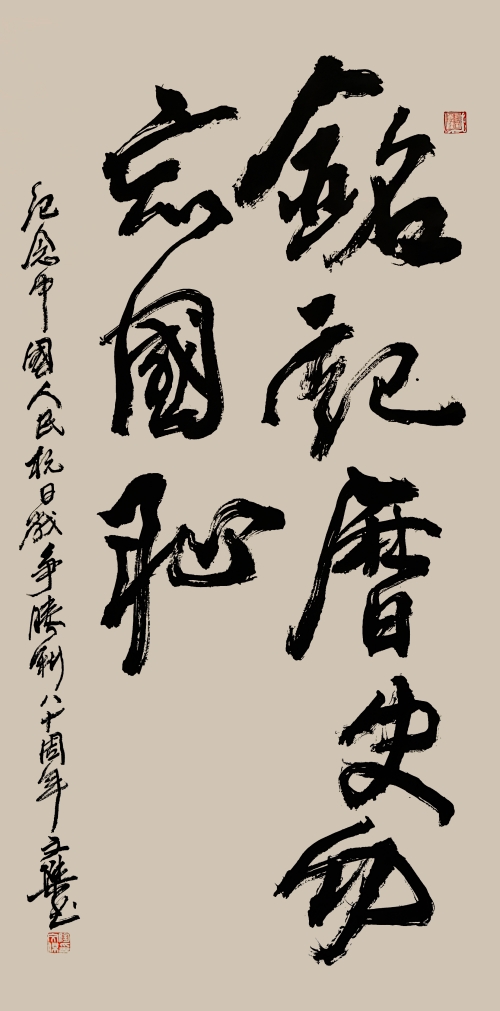 銘記曆史勿
忘國恥
紀念中國人民抗日戰爭勝利八十周年